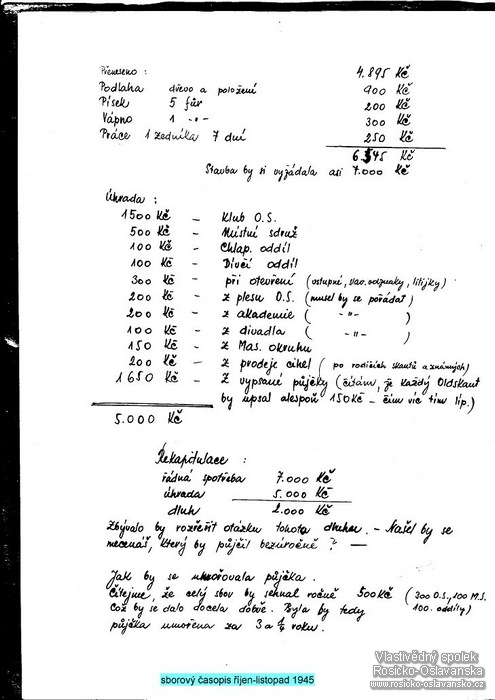 Přeneseno : 4.895 Kč
Podlaha dřevo a položení 900 Kč
Písek 5 fůr 200 Kč
Vápno 1 -"- 300 Kč
Práce 1 zedníka 7 dní 250 Kč
6.545 Kč
Stavba by si vyžádala asi 7.000 Kč
Úhrada :
1500 Kč – Klub O.S.
500 Kč – Místní sdruž
100 Kč – Chlap. oddíl
100 Kč – Dívčí oddíl
300 Kč – při otevření (vstupné, odznaky, lilijky)
200 Kč – z plesu O.S. (musel by se pořádat)
200 Kč – z akademie ( -"- )
100 Kč – z divadla ( -"- )
150 Kč – z Mas. okruhu
200 Kč – z prodeje cihel ( po rodičích skautů a známých)
1650 Kč – z vypsané půjčky (čítám, že každý Oldskaut
by upsal alespoň 150 Kč – čím víc tím líp.)
5.000 Kč
Rekapitulace :
řádná spotřeba 7.000 Kč
úhrada 5.000 Kč
dluh 2.000 Kč
Zbývalo by rozřešit otázku tohoto dluhu. – Našel by se
mecenáš, který by půjčil bezúročně ? —
Jak by se umořovala půjčka.
Čítejme, že celý sbor by sehnal ročně 500 Kč (300 O.S., 100 M.S.
Což by se dalo docela dobře. Byla by tedy 100. oddíly)
půjčka umořena za 3 a 1/2 roku.
sborový časopis říjen-listopad 1945
Vlastivědný spolek
Rosicko-Oslavanska
www.rosicko-oslavansko.cz